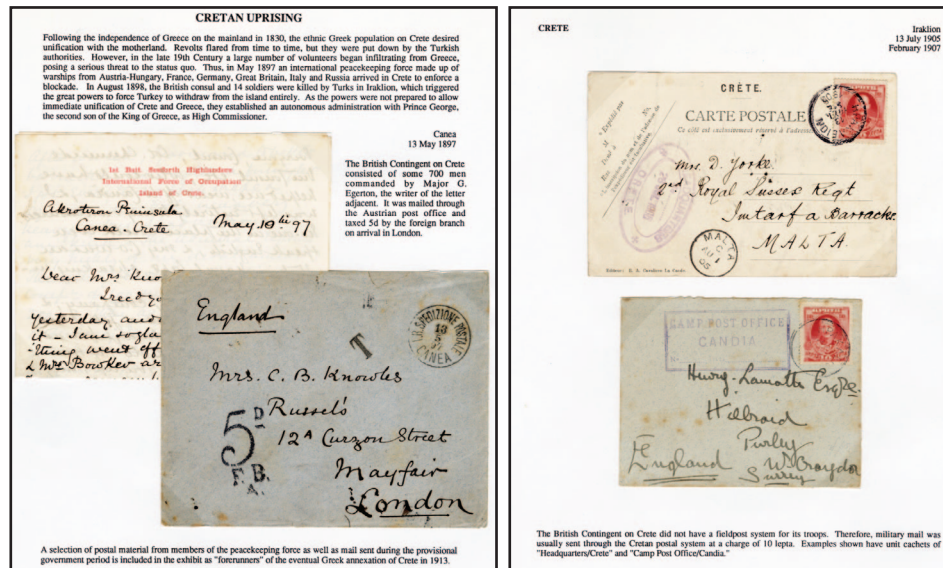 CRETAN UPRISING
Following the independence of Greece on the mainland in 1830, the ethnic Greek population on Crete desired
unification with the motherland. Revolts flared from time to time, but they were put down by the Turkish
authorities. However, in the late 19th Century a large number of volunteers began infiltrating from Greece,
posing a serious threat to the status quo. Thus, in May 1897 an international peacekeeping force made up of
warships from Austria-Hungary, France, Germany, Great Britain, Italy and Russia arrived in Crete to enforce a
blockade. In August 1898, the British consul and 14 soldiers were killed by Turks in Iraklion, which triggered
the great powers to force Turkey to withdraw from the island entirely. As the powers were not prepared to allow
immediate unification of Crete and Greece, they established an autonomous administration with Prince George,
the second son of the King of Greece, as High Commissioner.
Canea
13 May 1897
The British Contingent on Crete
consisted of some 700 men
commanded by Major G.
Egerton, the writer of the letter
adjacent. It was mailed through
the Austrian post office and
taxed 5d by the foreign branch
on arrival in London.
1st Batt. Seaforth Highlanders
International Force of Occupation
Island of Crete.
Akrotiron Peninsula
Canea - Crete
May 10th 97
Dear Mrs Kno
yesterday
it - I am so gla
thing went off
& Mrs Bowker
England
T
I.R. SPEDIZIONE POSTALE
13
5
97
CANEA
Mrs. C. B. Knowles
Russel's
12A Curzon Street
Mayfair
London
5D
F.B.
A.
A selection of postal material from members of the peacekeeping force as well as mail sent during the provisional
government period is included in the exhibit as "forerunners" of the eventual Greek annexation of Crete in 1913.
CRETE
Iraklion
13 July 1905
February 1907
CRÈTE.
CARTE POSTALE
Ce côté est exclusivement réservé à l'adresse
Mrs. D. Yorke
2nd Royal Sussex Regt
Imtarfa Barracks
MALTA.
MALTA
C
AU 1
05
CAMP POST OFFICE
CANDIA
Henry Lamotte Esqre
Hillbraid
Purley
W. Croydon
Surrey
England
The British Contingent on Crete did not have a fieldpost system for its troops. Therefore, military mail was
usually sent through the Cretan postal system at a charge of 10 lepta. Examples shown have unit cachets of
"Headquarters/Crete" and "Camp Post Office/Candia."